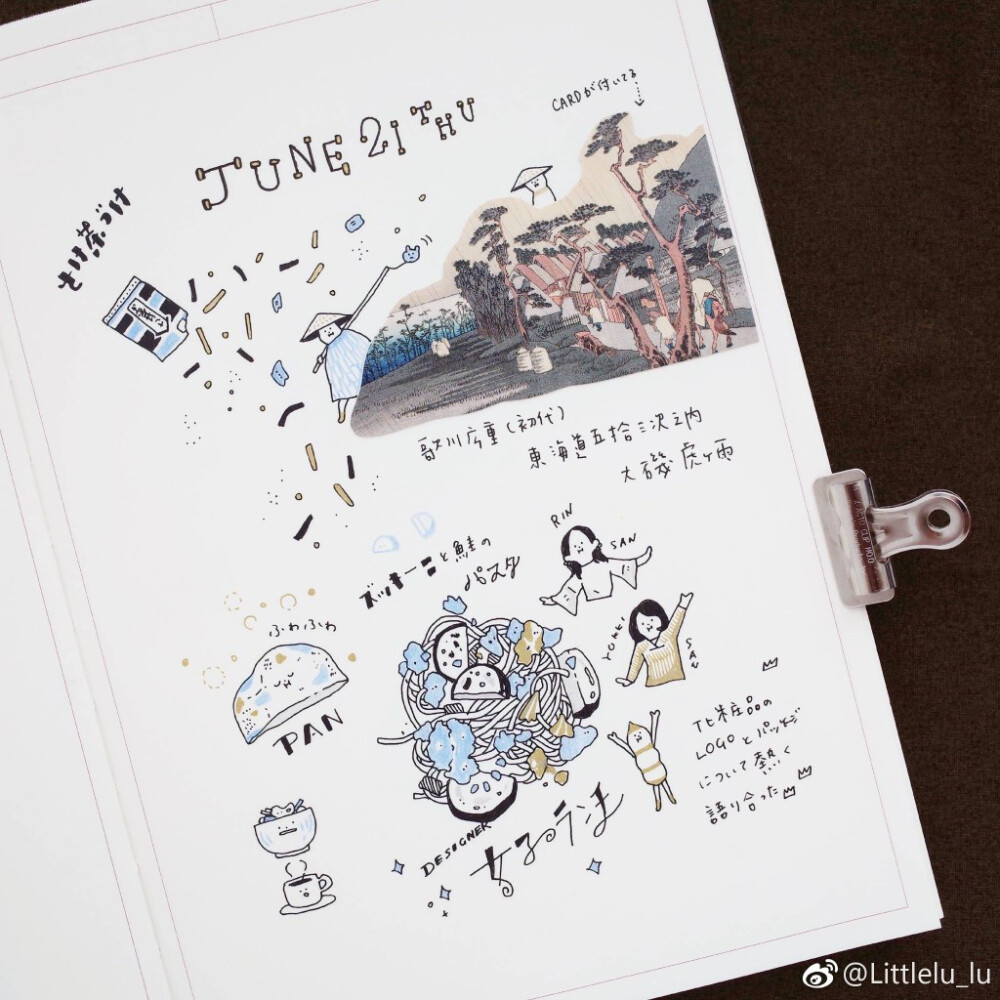 JUNE 21 THU
CARDが付いてる
さけ茶づけ
歌川広重(初代)
東海道五拾三次之内
大磯 虎ヶ雨
ズッキーニと鮭の
パスタ
RIN
SAN
SAN
ふわふわ
PAN
化粧品の
LOGOとパッケージ
について熱く
語り合った
DESIGNER
女子ランチ
@Littlelu_lu